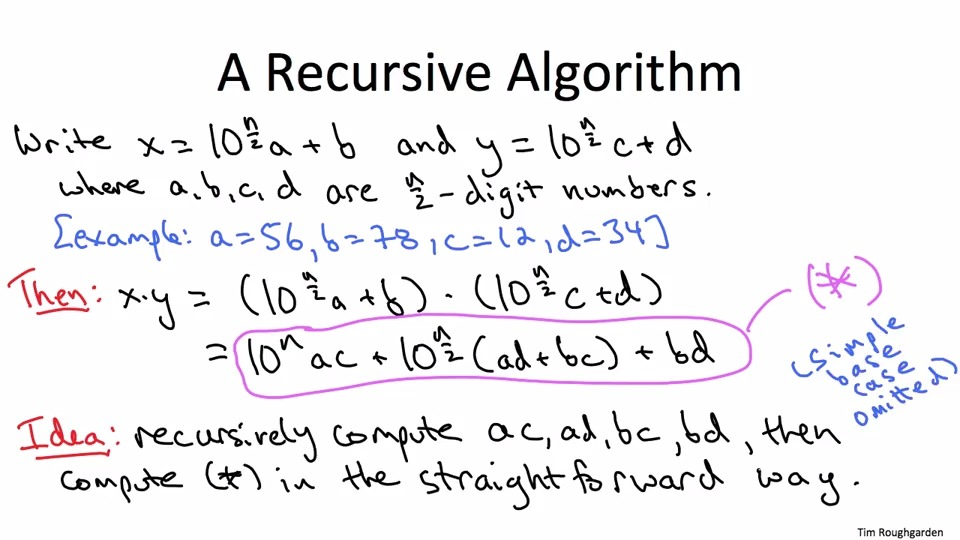 A Recursive Algorithm
Write x = 10^{n/2} a + b and y = 10^{n/2} c + d
where a, b, c, d are n/2 - digit numbers.
[example: a=56, b=78, c=12, d=34]
Then: x·y = (10^{n/2} a + b) · (10^{n/2} c + d)
(*)
= 10^n ac + 10^{n/2} (ad + bc) + bd
(simple
base
case
omitted)
Idea: recursively compute ac, ad, bc, bd, then
compute (*) in the straightforward way.
Tim Roughgarden